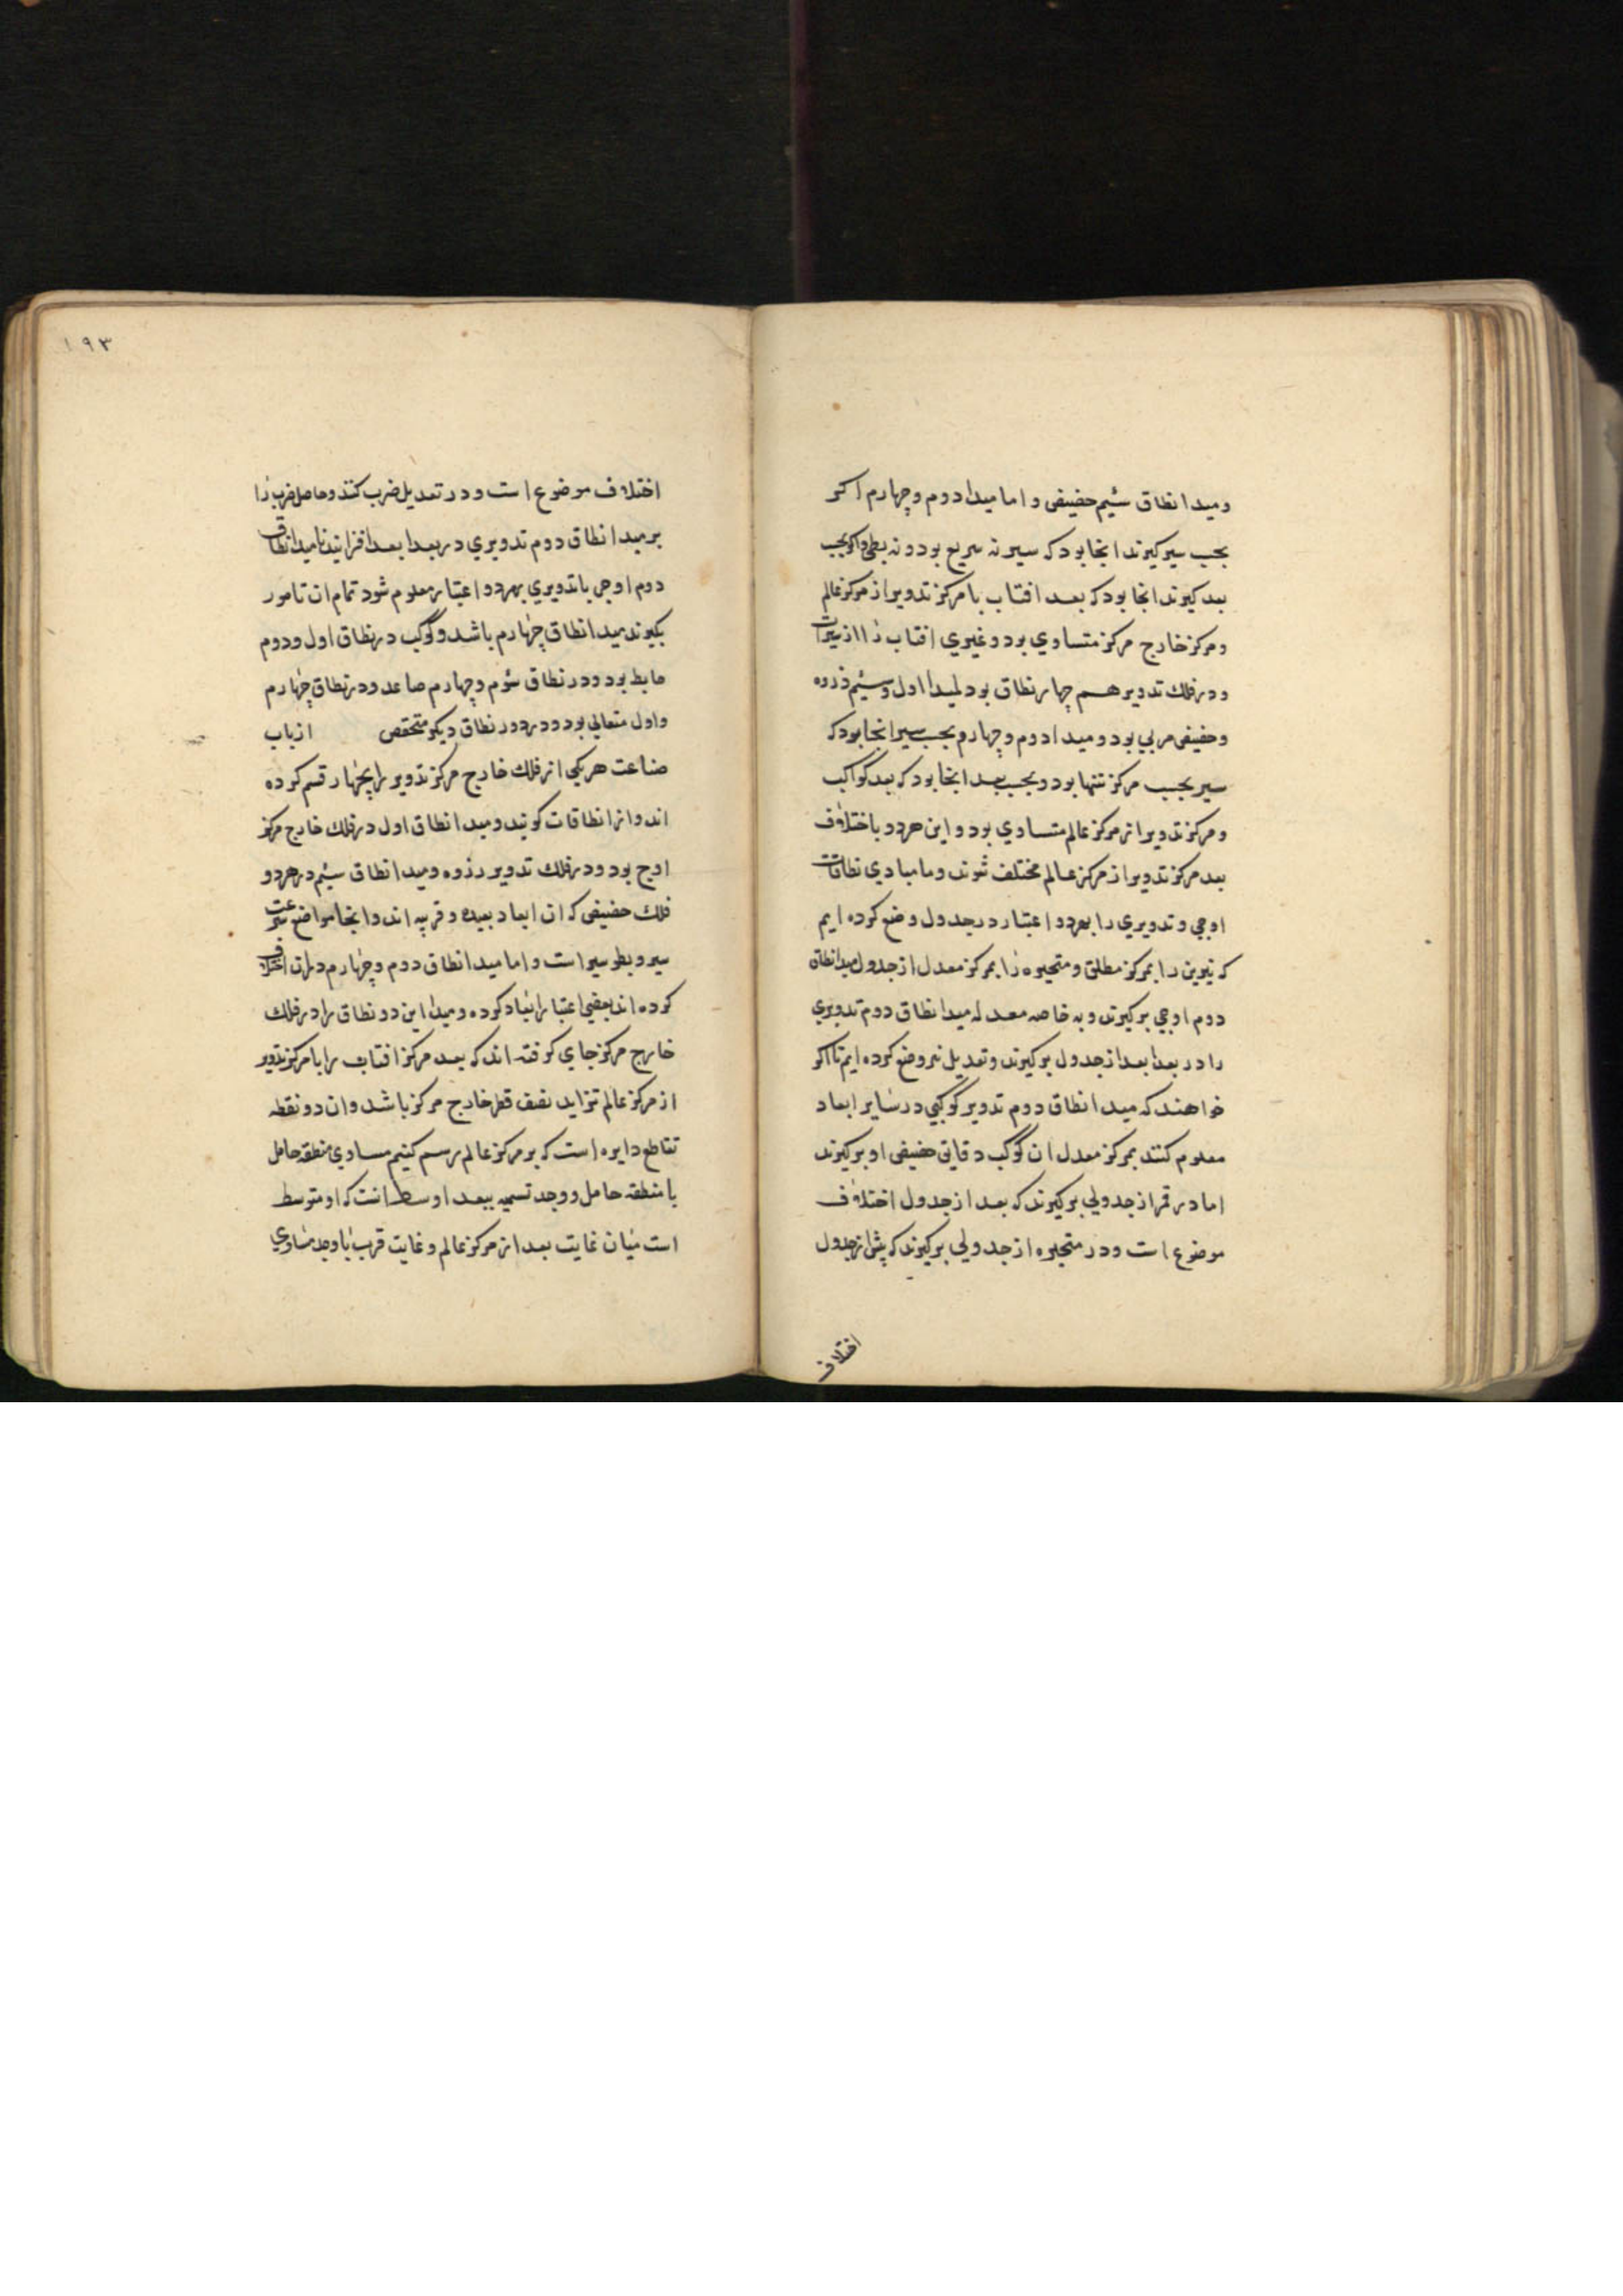 ومبدا نطاق سیم حضیض و اما مبدا دوم و چهارم اکر
بحسب سیر کیرند انجا بود که سیر نه سریع بود و نه بطی و اکر بحسب
بعد کیرند انجا بود که بعد افتاب یا مرکز تدویر از مرکز عالم
و مرکز خارج مرکز متساوی بود و غیری افتاب را از
و در فلك تدویر هم چهار نطاق بود لمبدا اول و سیم ذروه
و حضیض مربی بود و مبدا دوم و چهارم بحسب سیر انجا بود که
سیر بحسب مرکز تنها بود و بحسب بعد انجا بود که بعد کواکب
و مرکز تدویر از مرکز عالم متساوی بود و این هر دو باختلاف
بعد مرکز تدویر از مرکز عالم مختلف شوند و ما مبادی نطاقات
اوجی و تدویری را بهر دو اعتبار در جدول وضع کرده ایم
که نیرین را بمرکز مطلق و متحیره را بمرکز معدل از جدول مبدا نطاق
دوم اوجی برکیرند و به خاصه معدله مبدا نطاق دوم تدویری
را در بعد ابعد از جدول برکیرند و تعدیل نیز وضع کرده ایم تا اکر
خواهند که مبدا نطاق دوم تدویر کوکبی در سایر ابعاد
معلوم کنند بمرکز معدل ان کوکب دقایق حضیض او برکیرند
اما در قمر از جدولی برکیرند که بعد از جدول اختلاف
موضوع است و در متحیره از جدولی برکیرند که پیش از جدول
اختلاف
۱۹۳
اختلاف موضوع است و در تعدیل ضرب کنند و حاصل ضرب را
بر مبدا نطاق دوم تدویری در بعد ابعد افزایند تا مبدا نطاق
دوم اوجی یا تدویری بهر دو اعتبار معلوم شود تمام ان تا مور
بکیرند مبدا نطاق چهارم باشد و کوکب در نطاق اول و دوم
هابط بود و در نطاق سوم و چهارم صاعد و در نطاق چهارم
و اول متعالی بود و در دور نطاق دیکر متخفض از باب
صناعت هر یکی از فلك خارج مرکز تدویر را بچهار قسم کرده
اند و انرا نطاقات کویند و مبدا نطاق اول در فلك خارج مرکز
اوج بود و در فلك تدویر ذروه و مبدا نطاق سیم در هر دو
فلك حضیض که ان ابعاد بعیده و قریبه اند و انجا مواضع سرعت
سیر و بطو سیر است و اما مبدا نطاق دوم و چهارم دران اختلاف
کرده اند بعضی اعتبار ابعاد کرده و مبدا این دو نطاق را در فلك
خارج مرکز جای کرفته اند که بعد مرکز افتاب را با مرکز تدویر
از مرکز عالم تزاید نصف قطر خارج مرکز باشد و ان دو نقطه
تقاطع دایره است که بر مرکز عالم رسم کنیم مساوی منطقه حامل
با منطقه حامل و وجد تسمیه ببعد اوسط انست که او متوسط
است میان غایت بعد از مرکز عالم و غایت قرب با وجد مساوی